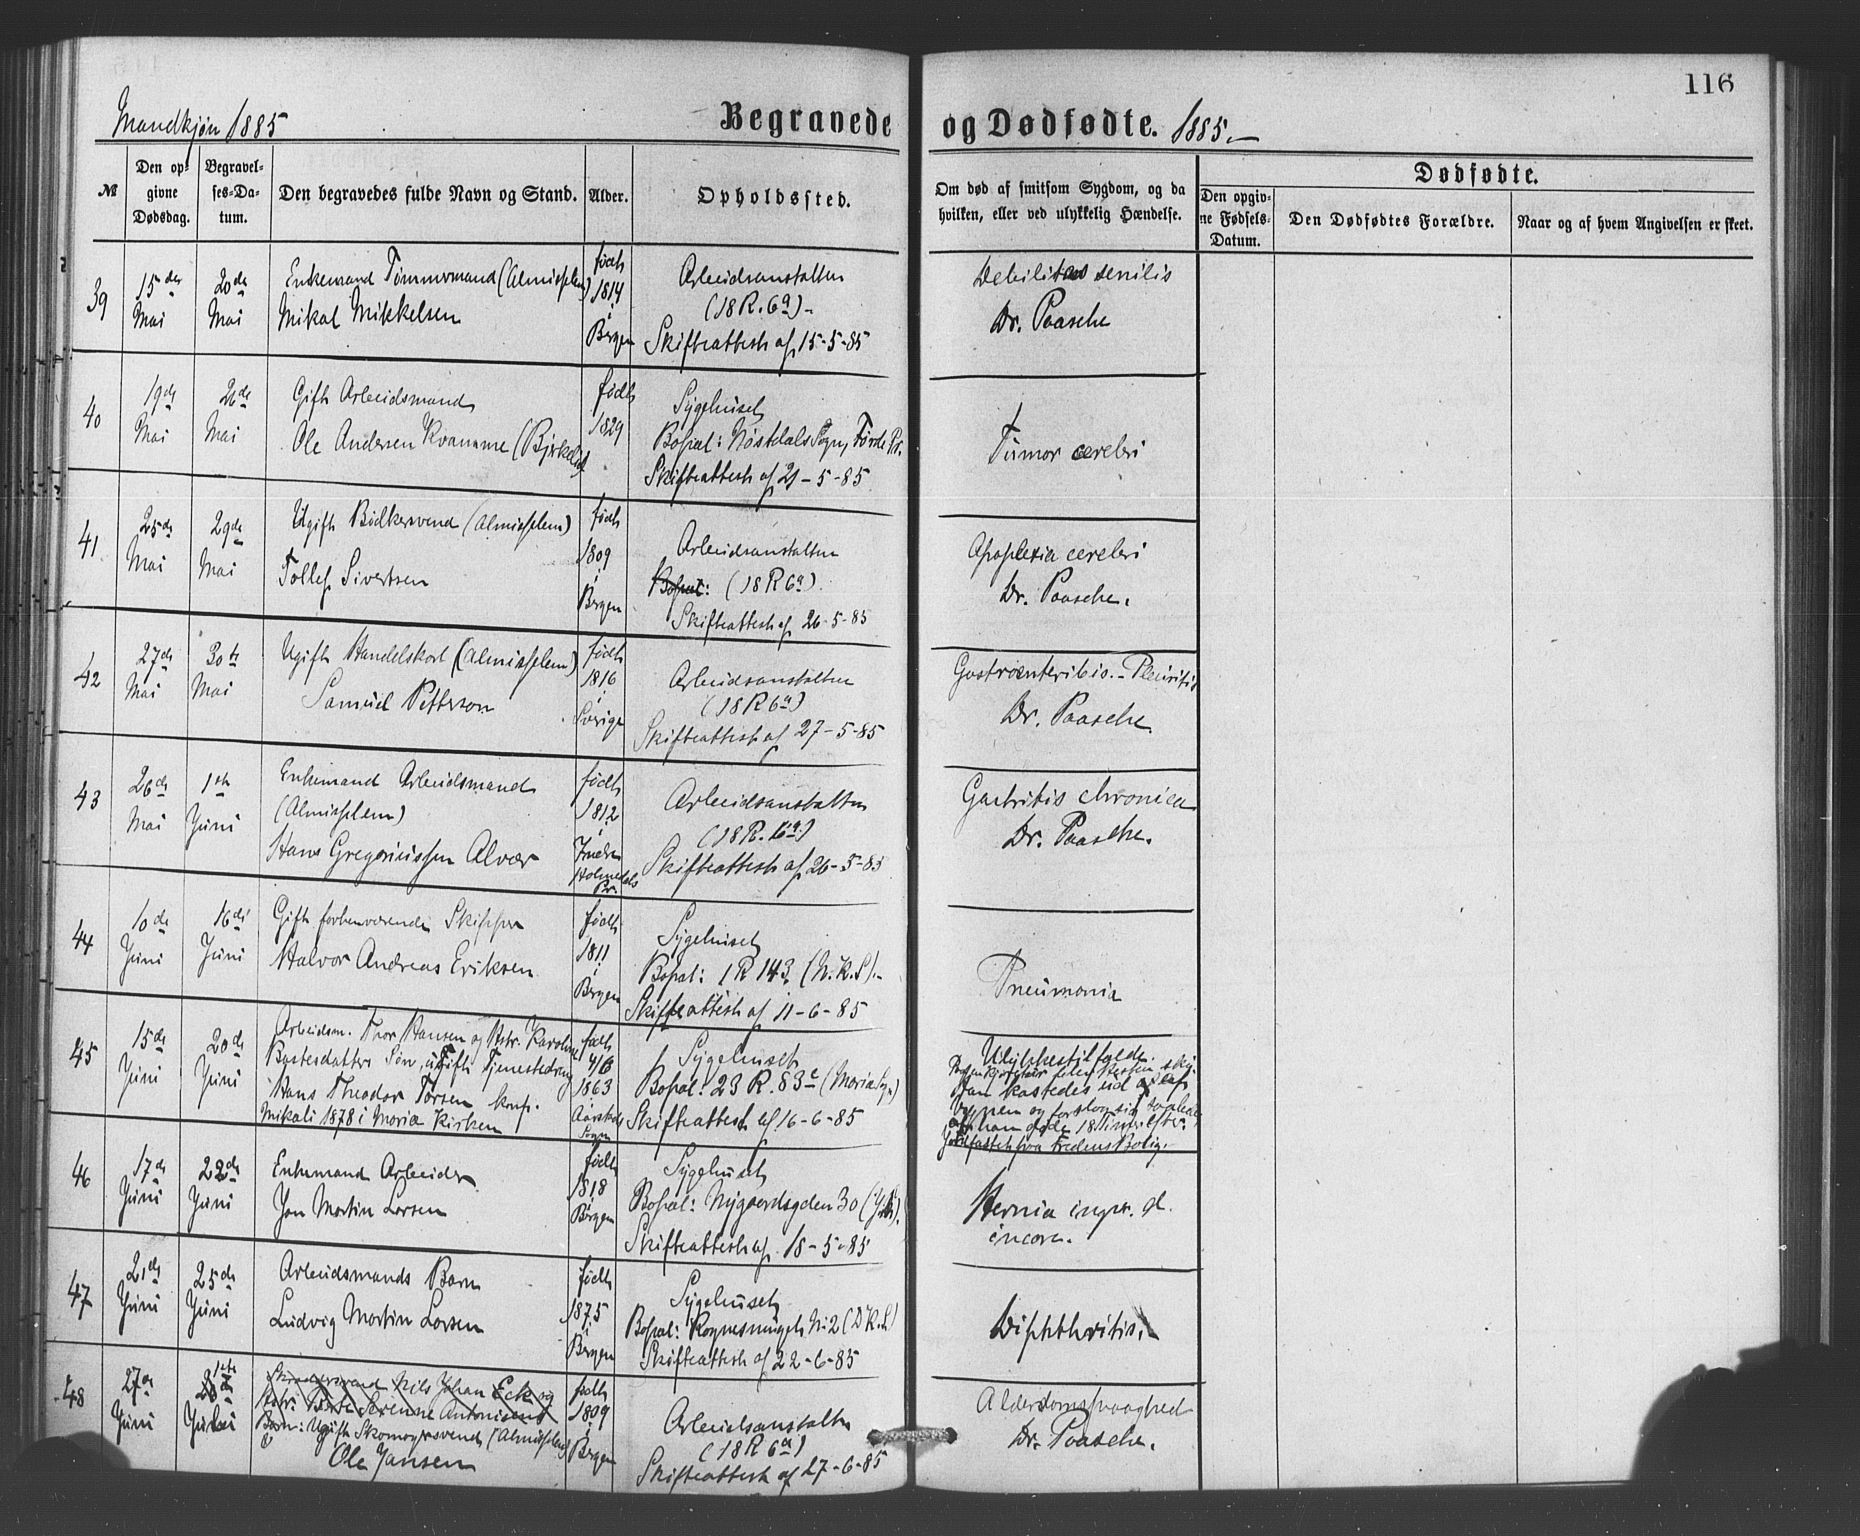 116
Mandkjøn 1885
Begravede og Dødfødte. 1885.
№
Den opgivne Dødsdag.
Begravelses-Datum.
Den begravedes fulde Navn og Stand.
Alder.
Opholdssted.
Om død af smitsom Sygdom, og da hvilken, eller ved ulykkelig Hændelse.
Dødfødte.
Den opgivne Fødsels-Datum.
Den Dødfødtes Forældre.
Naar og af hvem Angivelsen er skeet.
39
15de Mai
20de Mai
Enkemand Tømmermand (Almisselem)
Mikal Mikkelsen
født 1814 i Bergen
Arbeidsanstalten
(18 R. 6a) -
Skifteattest af 15-5-85
Debilitas senilis
Dr. Paasche
40
19de Mai
26de Mai
Gift Arbeidsmand
Ole Andersen Kvamme
født 1829
Sygehuset
Bopæl: Nøstdals Sogn, Førde Pr.
Skifteattest af 21-5-85
Tumor cerebri
41
25de Mai
29de Mai
Ugift Bødkersvend (Almisselem)
Tollef Sivertsen
født 1809 i Bergen
Arbeidsanstalten
Bopæl: (18 R 6a)
Skifteattest af 26-5-85
Apoplexia cerebri
Dr. Paasche.
42
27de Mai
30te Mai
Ugift Handelskarl (Almisselem)
Samuel Petterson
født 1816 i Sverige
Arbeidsanstalten
(18 R 6a)
Skifteattest af 27-5-85
Gastroenteritis. - Pleuritis
Dr. Paasche
43
26de Mai
1ste Juni
Enkemand Arbeidsmand
(Almisselem)
Hans Gregoriussen Alvær
født 1812 i Indre Holmedals Pr.
Arbeidsanstalten
(18 R. 6a)
Skifteattest af 26-5-85
Gastritis chronica
Dr. Paasche.
44
10de Juni
16de Juni
Gift forhenværende Skipper
Halvor Andreas Eriksen
født 1811 i Bergen
Sygehuset
Bopæl: 1 R 143. (N. K. S).-
Skifteattest af 11-6-85
Pneumonia
45
15de Juni
20de Juni
Arbeidsm. Thor Hansen og Hstr. Karoline
Bastesdatter Søn, ugift Tjenestedreng
Hans Theodor Torsen konf.
Mikali 1878 i Mariæ Kirken
født 4/6 1863 Aarstads Sogn
Sygehuset
Bopæl: 23 R. 83c (Maria Sogn)
Skifteattest af 16-6-85
Ulykkestilfælde.
kastedes ud af
og forslog sig
han døde 18 Timer efter.
fra Fredens Bolig.
46
17de Juni
22de Juni
Enkemand Arbeider
Jan Martin Larsen
født 1818 i Bergen
Sygehuset
Bopæl: Nygaardsgden 30
Skifteattest af 18-5-85
Hernia ingv. d.
incarc.
47
21de Juni
25de Juni
Arbeidsmands Barn
Ludvig Martin Larsen
født 1875 i Bergen
Sygehuset
Bopæl: N: 2 (D. K. S)
Skifteattest af 22-6-85
Diphthritis.
48
27de Juni
1ste Juli
Nils Johan Eck og
Serenne Antonisens
Barn: Ugift Skomagersvend (Almisselem)
Ole Jansen
født 1809 i Bergen
Arbeidsanstalten
(18 R 6a)
Skifteattest af 27-6-85
Alderdomssvaghed
Dr. Paasche.